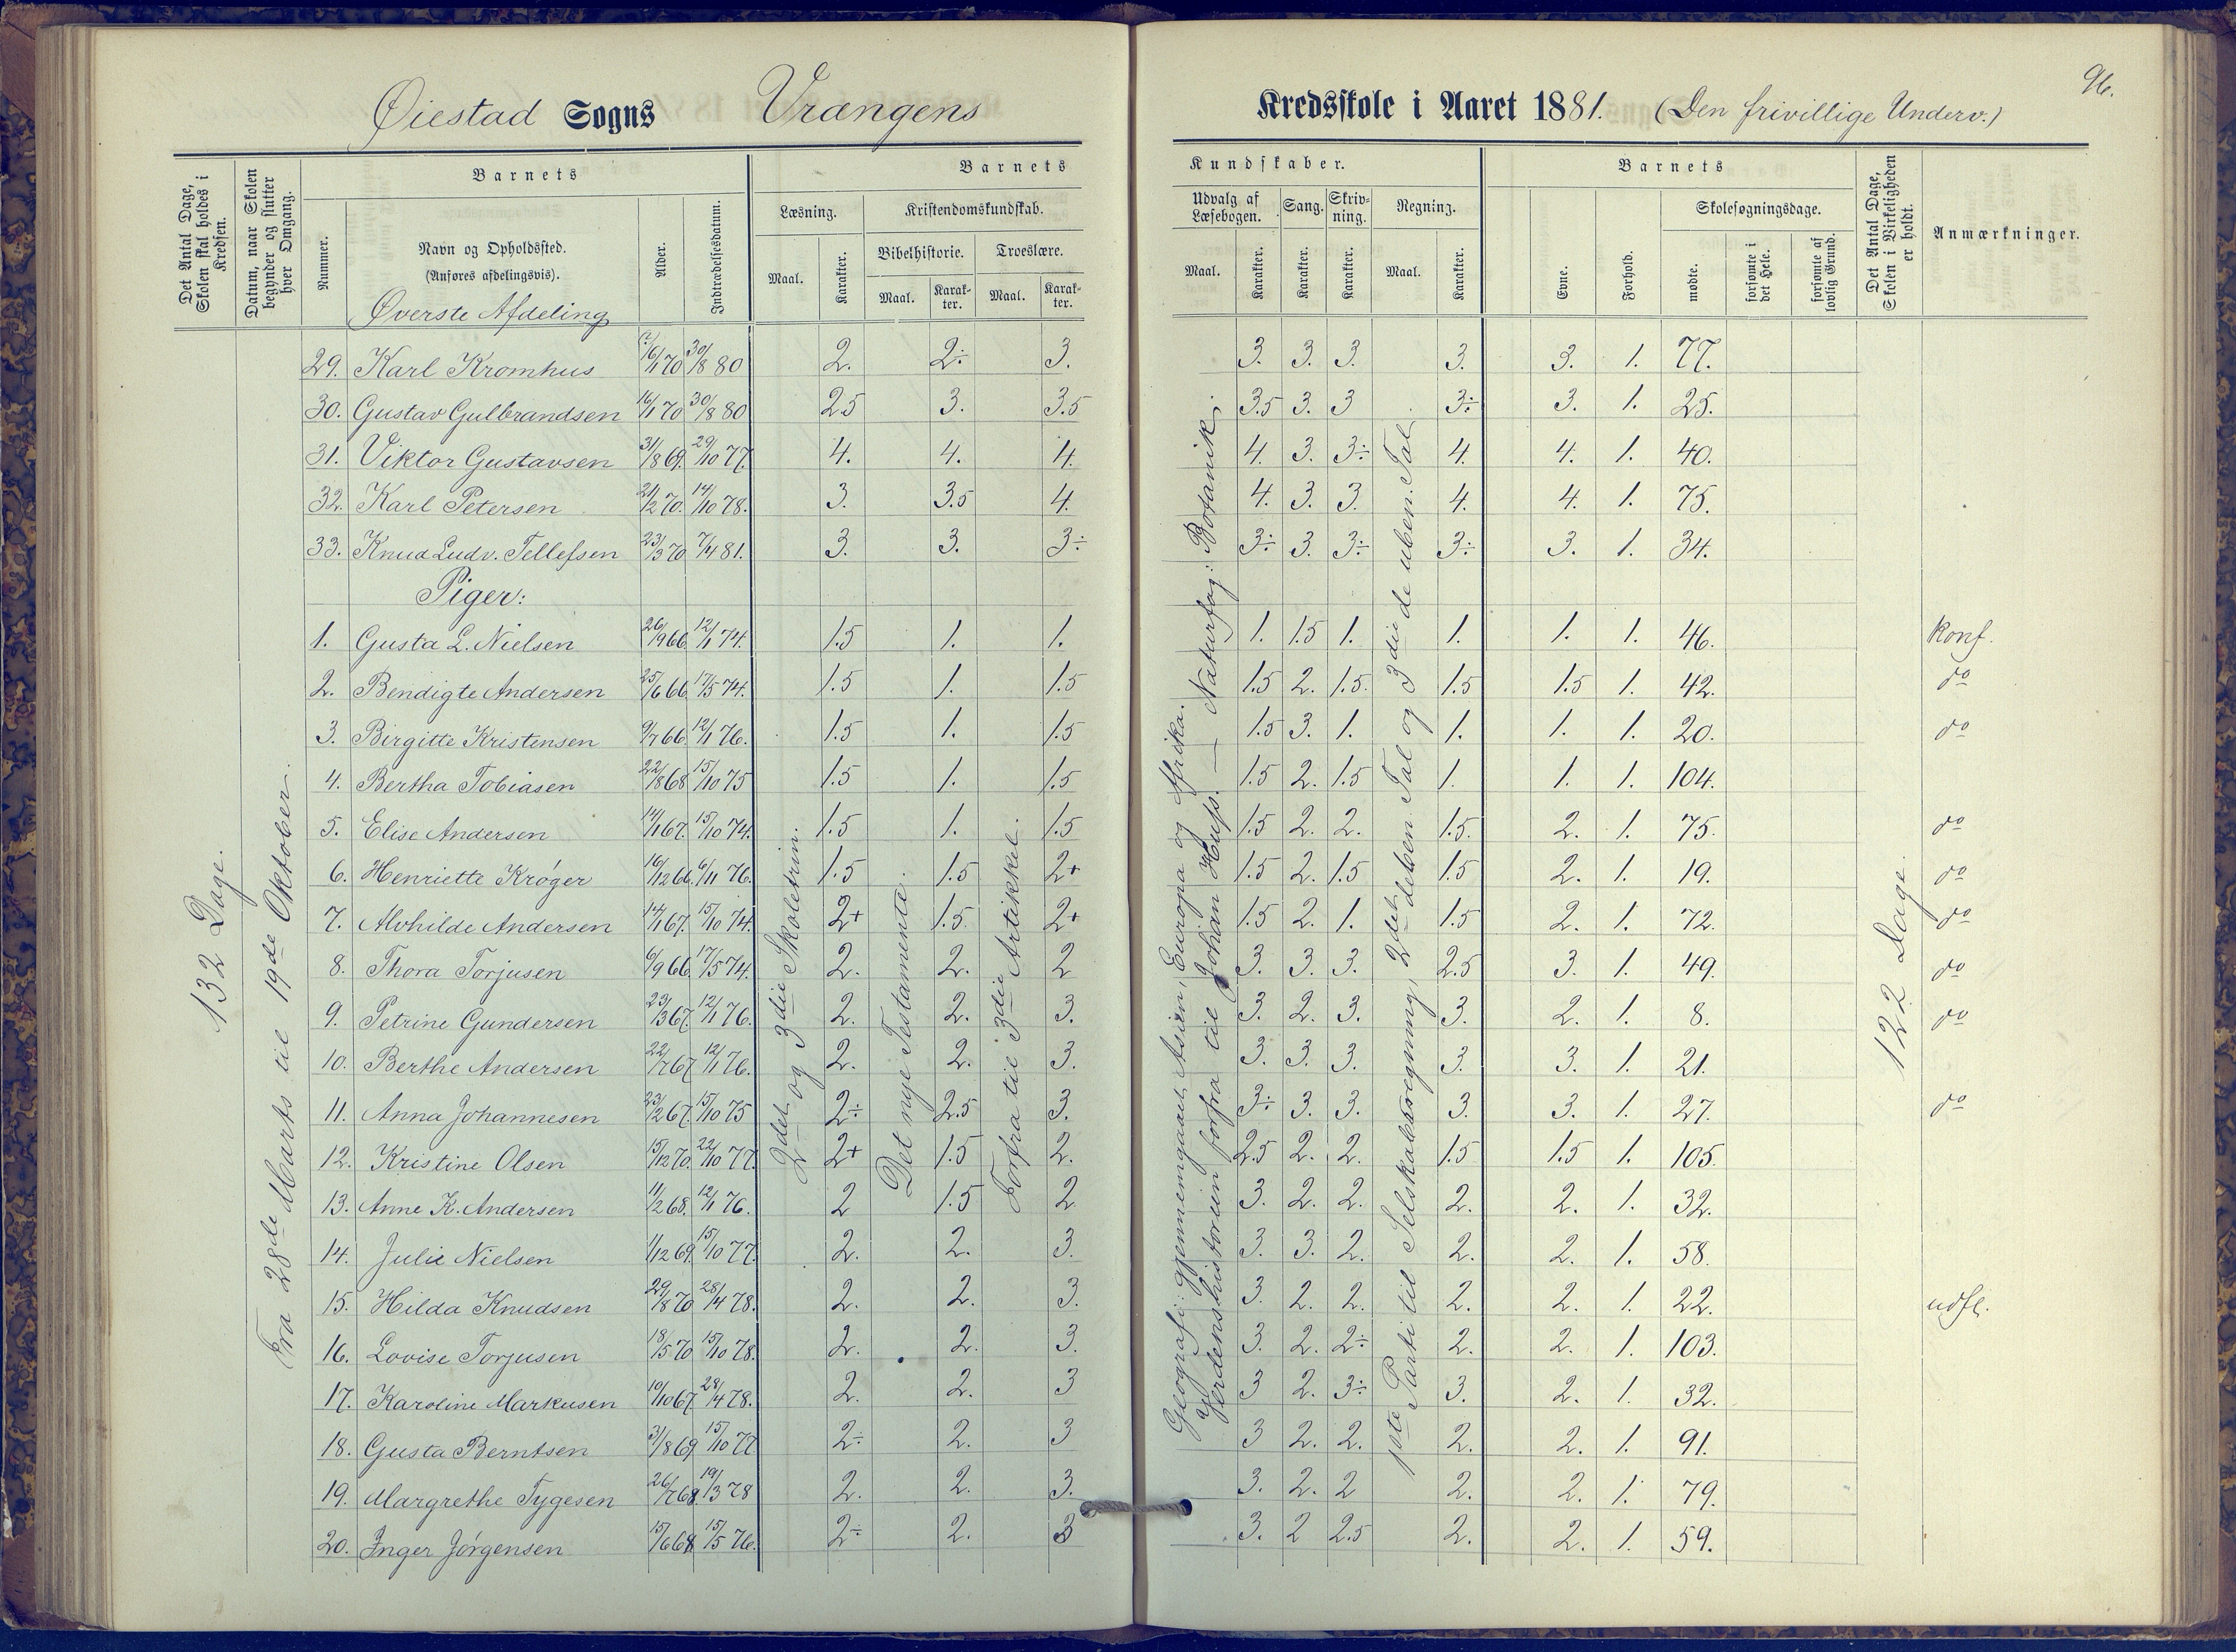 96.
Øiestad Sogns Vrængens Kredsskole i Aaret 1881. (Den frivillige Underv.)
Det Antal Dage, Skolen skal holdes i Kredsen.
Datum, naar Skolen begynder og slutter hver Omgang.
Barnets
Nummer.
Navn og Opholdssted.
(Anføres afdelingsvis).
Alder.
Indtrædelsesdatum.
Barnets Kundskaber.
Læsning.
Maal.
Karakter.
Kristendomskundskab.
Bibelhistorie.
Maal.
Karakter.
Troeslære.
Maal.
Karakter.
Udvalg af Læsebogen.
Maal.
Karakter.
Sang.
Karakter.
Skrivning.
Karakter.
Regning.
Maal.
Karakter.
Barnets
Evne.
Forhold.
Skolesøgningsdage.
mødte.
forsømte i det Hele.
forsømte af lovlig Grund.
Det Antal Dage, Skolen i Virkeligheden er holdt.
Anmærkninger.
Øverste Afdeling
132 Dage.
Fra 28de Marts til 19de Oktober.
2det og 3die Skoletrin.
Det nye Testamente.
Forfra til 3die Artikkel.
Geografi: gjennemgaaet Asien, Europa og Afrika.
Verdenshistorien forfra til Johan Huss. — Naturfag: Botanik.
1ste Parti til Selskabsregning, 2det deben. Tal og 3die de uben. Tal
122 Dage.
29. Karl Kromhus 16/1 70 30/8 80 2. 2÷ 3. 3. 3. 3. 3. 3. 1. 77.
30. Gustav Gulbrandsen 16/1 70 30/8 80 2.5 3. 3.5 3.5 3. 3 3÷ 3. 1. 25.
31. Viktor Gustavsen 31/8 69. 29/10 77. 4. 4. 4. 4. 3. 3÷ 4. 4. 1. 40.
32. Karl Petersen 21/2 70. 14/10 78. 3. 3.5 4. 4. 3. 3. 4. 4. 1. 75.
33. Knud Ludv. Tellefsen 23/3 70 7/4 81. 3. 3. 3÷ 3÷ 3. 3÷ 3÷ 3. 1. 34.
Piger:
1. Gusta L. Nielsen 26/9 66 12/1 74. 1.5 1. 1. 1. 1.5 1. 1. 1. 1. 46. konf.
2. Bendigte Andersen 25/6 66 17/5 74. 1.5 1. 1.5 1.5 2. 1.5. 1.5 1.5 1. 42. do
3. Birgitte Kristensen 9/7 66. 12/1 76. 1.5 1. 1.5 1.5 3. 1. 1. 1. 1. 20. do
4. Bertha Tobiasen 22/8 68 15/10 75 1.5 1. 1.5 1.5 2. 1.5 1. 1. 1. 104.
5. Elise Andersen 14/1 67. 15/10 74. 1.5 1. 1.5 1.5 2. 2. 1.5. 2. 1. 75. do
6. Henriette Krøger 16/12 66. 6/11 76. 1.5 1.5 2+ 1.5 2. 1.5 1.5 2. 1. 19. do
7. Alvhilde Andersen 14/1 67. 15/10 74. 2+ 1.5. 2+ 1.5 2. 1. 1.5 2. 1. 72. do
8. Thora Torjusen 6/9 66 17/5 74. 2. 2. 2 3. 3. 3. 2.5 3. 1. 49. do
9. Petrine Gundersen 23/3 67. 12/1 76. 2. 2. 3. 3. 2. 3. 3. 2. 1. 8. do
10. Berthe Andersen 22/7 67 12/1 76. 2. 2. 3. 3. 3. 3. 3. 3. 1. 21.
11. Anna Johannesen 23/2 67. 15/10 75 2÷ 2.5 3. 3÷ 3. 3. 3. 3. 1. 27. do
12. Kristine Olsen 15/12 70. 22/10 77. 2+ 1.5 2. 2.5 2. 2. 1.5 1.5 1. 105.
13. Anne K. Andersen 11/2 68. 12/1 76. 2 1.5 2 3. 2. 2. 2. 2. 1. 32.
14. Julie Nielsen 1/12 69. 15/10 77. 2. 2. 3. 3. 3. 2. 2. 2. 1. 58.
15. Hilda Knudsen 29/8 70 28/4 78. 2. 2. 3. 3. 2. 2. 2. 2. 1. 22. udfl.
16. Lovise Torjusen 18/5 70 15/10 78. 2. 2. 3. 3. 2. 2÷ 2. 2. 1. 103.
17. Karoline Markusen 10/10 67 28/4 78. 2. 2. 3 3 2. 3÷ 3. 2. 1. 32.
18. Gusta Berntsen 31/8 69. 15/10 77 2÷ 2. 3 3 2. 2. 2. 2. 1. 91.
19. Margrethe Tygesen 26/7 68. 19/3 78 2. 2. 3. 3. 2. 2 2. 2. 1. 79.
20. Inger Jørgensen 15/6 68 15/5 76. 2÷ 2. 3 3. 2 2.5 2. 2. 1. 59.